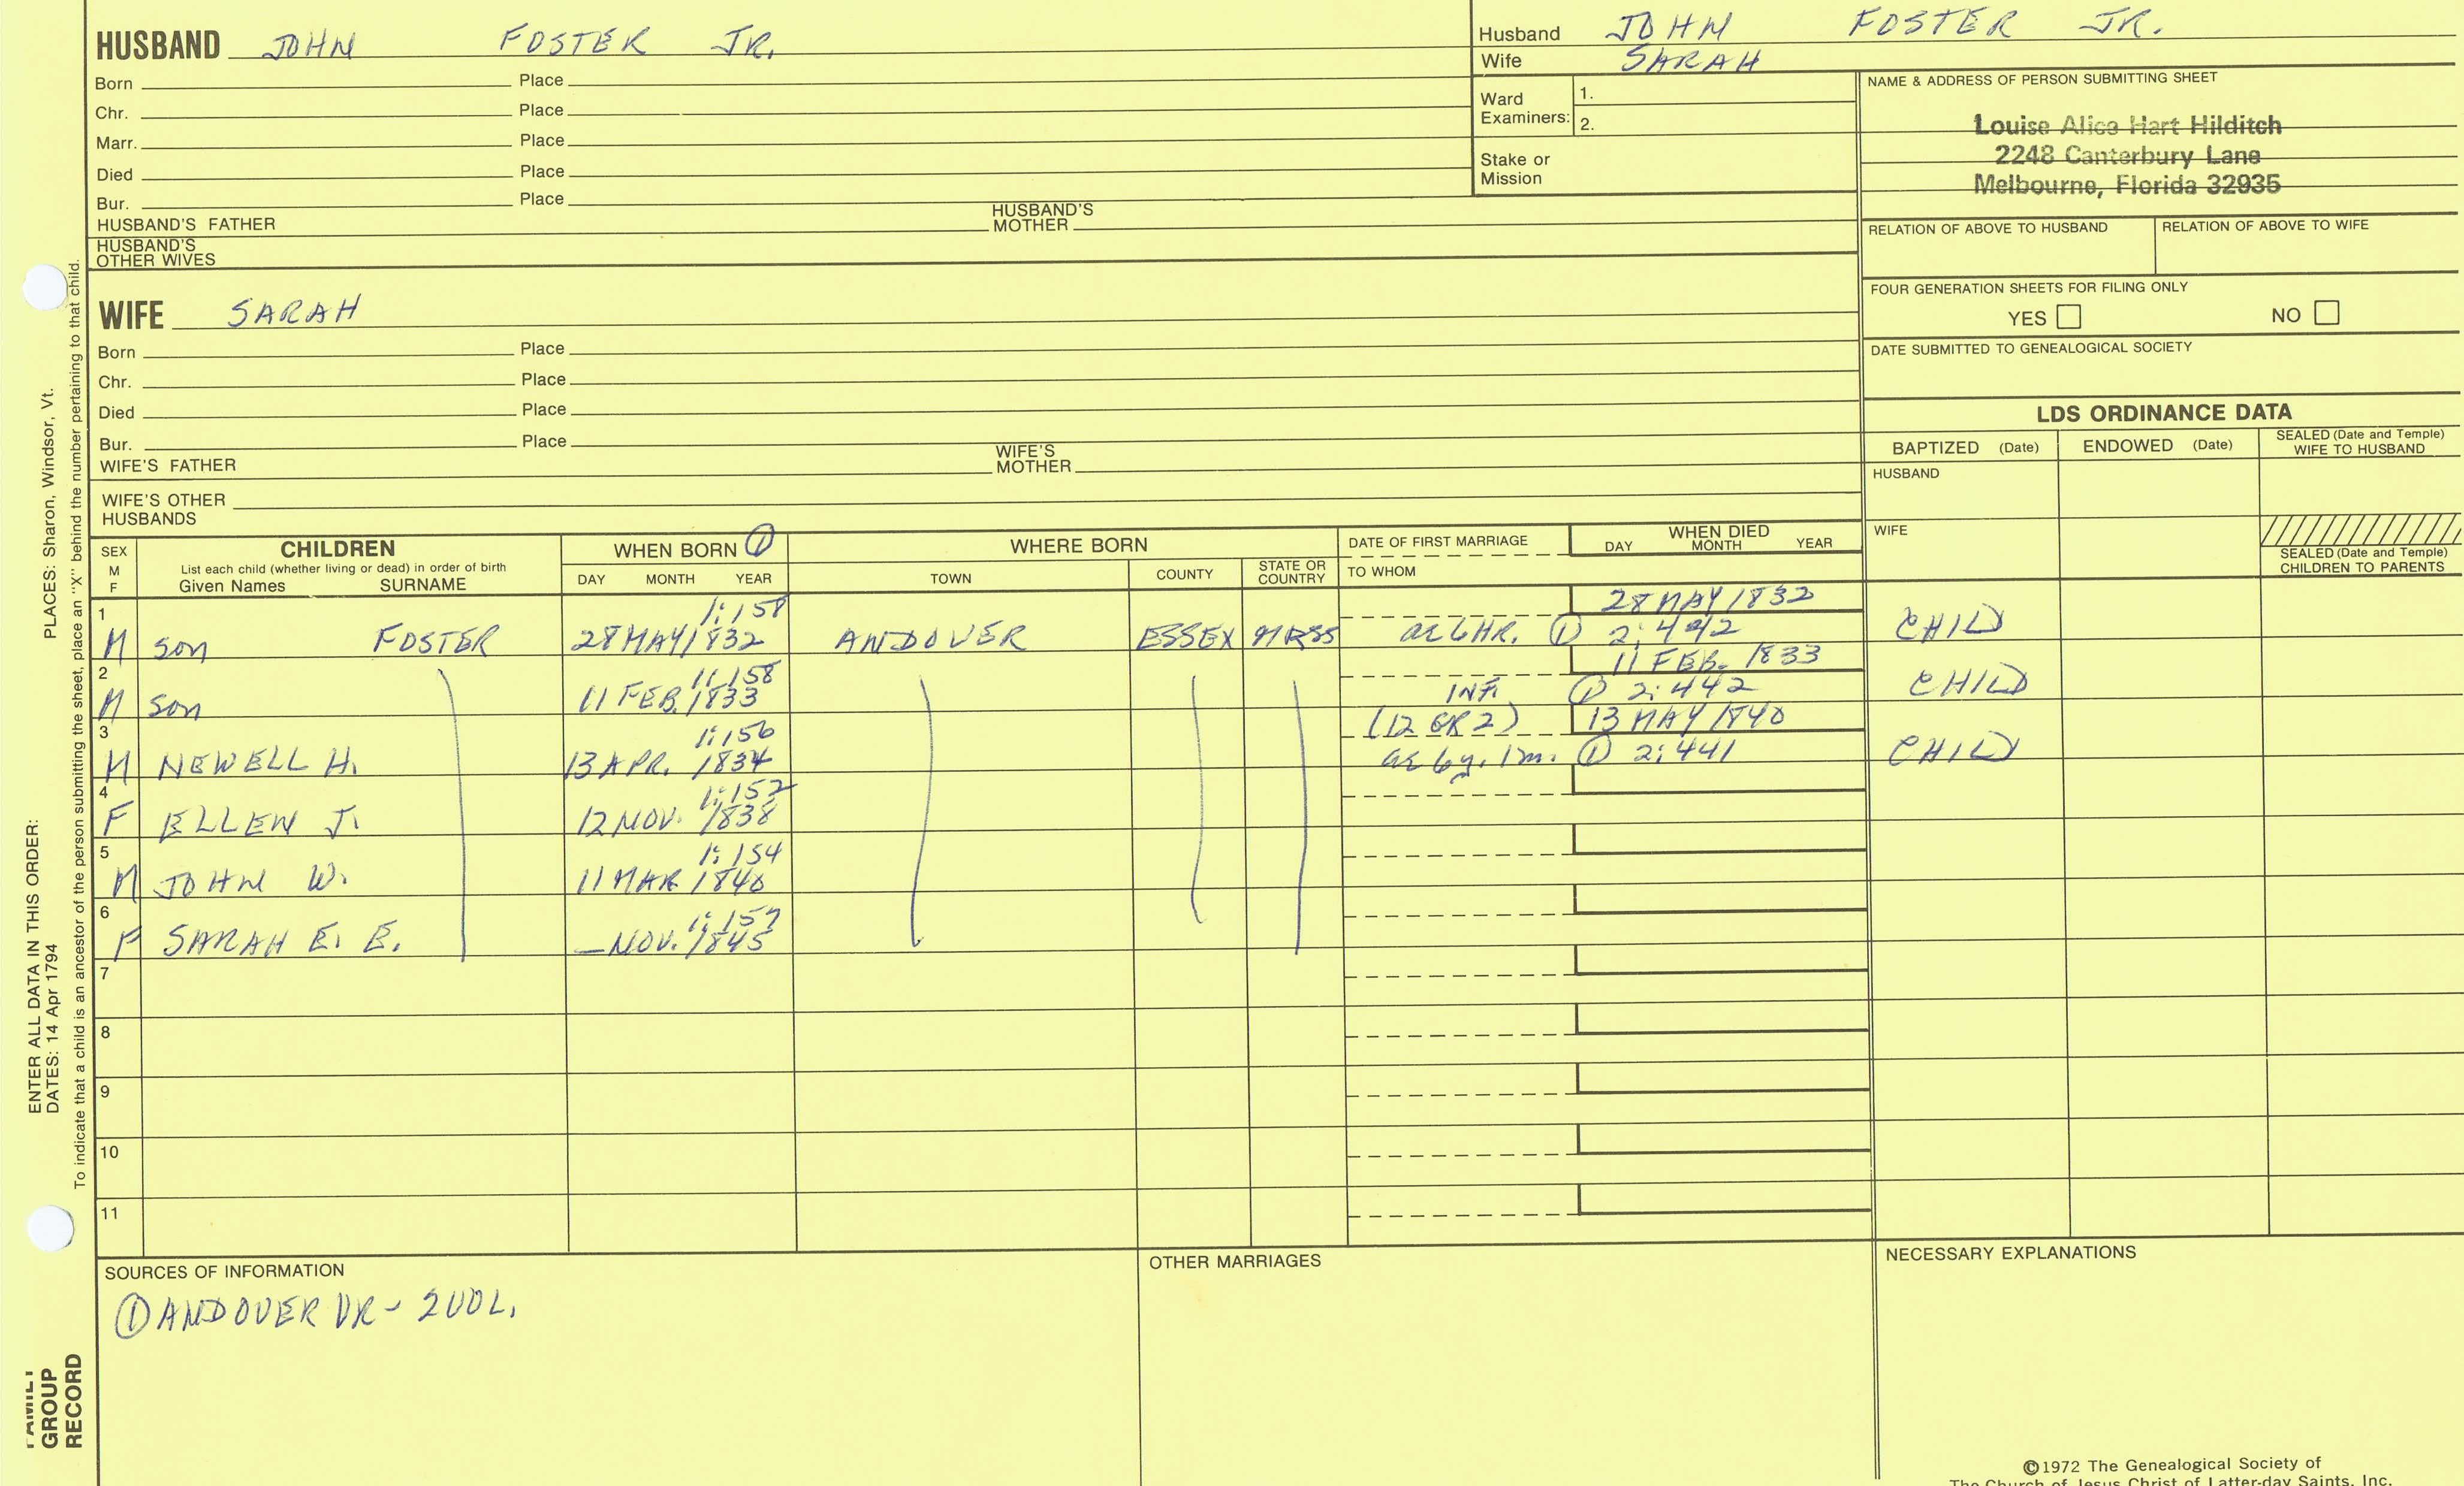 HUSBAND JOHN FOSTER JR.
Born Place
Chr. Place
Marr. Place
Died Place
Bur. Place
HUSBAND'S FATHER HUSBAND'S MOTHER
HUSBAND'S OTHER WIVES
Husband JOHN FOSTER JR.
Wife SARAH
Ward Examiners: 1. 2.
Stake or Mission
NAME & ADDRESS OF PERSON SUBMITTING SHEET
Louise Alice Hart Hilditch
2248 Canterbury Lane
Melbourne, Florida 32935
RELATION OF ABOVE TO HUSBAND RELATION OF ABOVE TO WIFE
FOUR GENERATION SHEETS FOR FILING ONLY
YES NO
DATE SUBMITTED TO GENEALOGICAL SOCIETY
WIFE SARAH
Born Place
Chr. Place
Died Place
Bur. Place
WIFE'S FATHER WIFE'S MOTHER
WIFE'S OTHER HUSBANDS
LDS ORDINANCE DATA
BAPTIZED (Date) ENDOWED (Date) SEALED (Date and Temple) WIFE TO HUSBAND
HUSBAND
WIFE
SEALED (Date and Temple) CHILDREN TO PARENTS
SEX M F
CHILDREN
List each child (whether living or dead) in order of birth
Given Names SURNAME
WHEN BORN ①
DAY MONTH YEAR
WHERE BORN
TOWN COUNTY STATE OR COUNTRY
DATE OF FIRST MARRIAGE
TO WHOM
WHEN DIED
DAY MONTH YEAR
1 1:158 28 MAY 1832
M son FOSTER 28 MAY 1832 ANDOVER ESSEX MASS ae 6 HR. ① 2:442 CHILD
2 1:158 11 FEB. 1833
M son 11 FEB. 1833 INF. ① 2:442 CHILD
3 1:156 (12 GR 2) 13 MAY 1840
M NEWELL H. 13 APR. 1834 ae 6y. 1m. ① 2:441 CHILD
4 1:152
F ELLEN J. 12 NOV. 1838
5 1:154
M JOHN W. 11 MAR 1840
6 1:157
F SARAH E. E. — NOV. 1845
7
8
9
10
11
SOURCES OF INFORMATION
① ANDOVER VR - 2 VOL.
OTHER MARRIAGES
NECESSARY EXPLANATIONS
©1972 The Genealogical Society of
The Church of Jesus Christ of Latter-day Saints, Inc.
PLACES: Sharon, Windsor, Vt.
ENTER ALL DATA IN THIS ORDER:
DATES: 14 Apr 1794
To indicate that a child is an ancestor of the person submitting the sheet, place an "X" behind the number pertaining to that child.
FAMILY GROUP RECORD